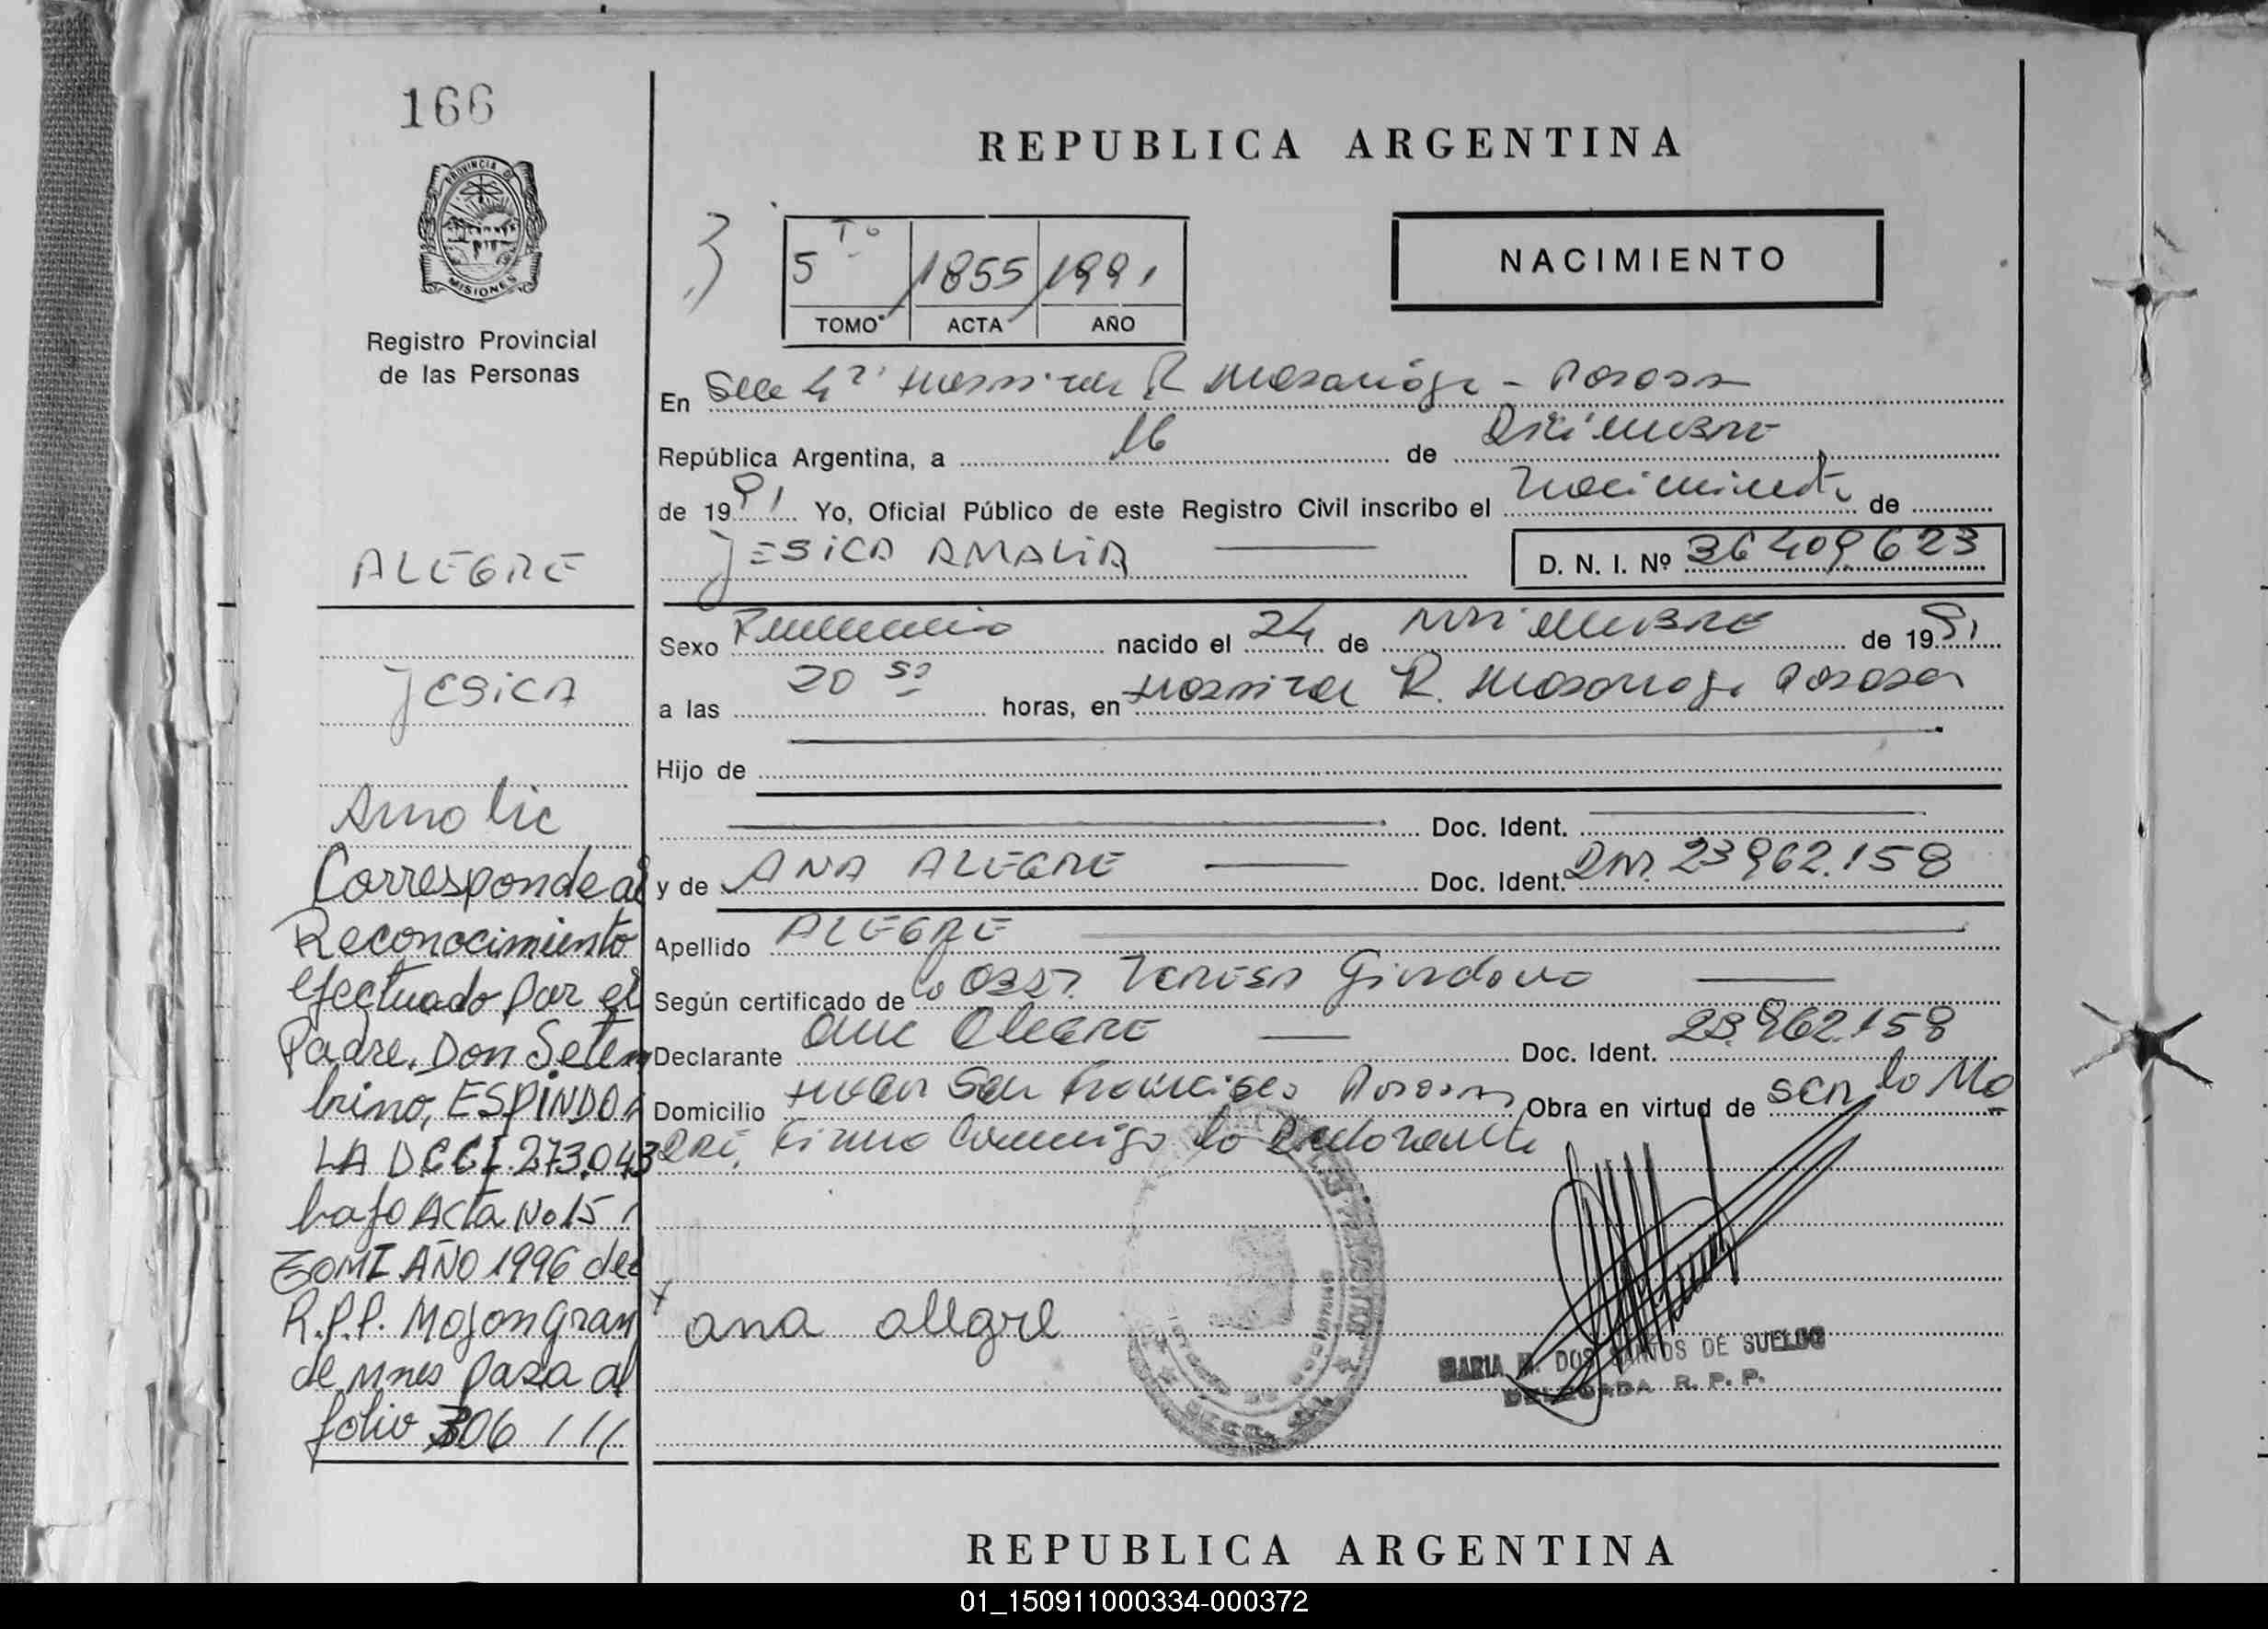 166
PROVINCIA DE
MISIONES
Registro Provincial
de las Personas
ALEGRE
JESICA
Amalia
Corresponde al
Reconocimiento
efectuado por el
Padre. Don Setem
brino, ESPINDO
LA DCCI 273.043
bajo Acta No 15
TOMI AÑO 1996 del
R.P.P. Mojon Gran
de Mnes Pasa al
folio 306 ///
REPUBLICA ARGENTINA
5 Tº 1855 1991
TOMO ACTA AÑO
NACIMIENTO
En Secc 4ª Hospital R Madariaga - Posadas
República Argentina, a 16 de Diciembre
de 1991 Yo, Oficial Público de este Registro Civil inscribo el Nacimiento de
JESICA AMALIA D. N. I. Nº 36409623
Sexo Femenino nacido el 24 de Noviembre de 1991
a las 20 50 horas, en Hospital R. Madariaga Posadas
Hijo de
Doc. Ident.
y de ANA ALEGRE Doc. Ident. DNI. 23962.158
Apellido ALEGRE
Según certificado de la Obst. Teresa Giordano
Declarante Ana Alegre Doc. Ident. 23.962.158
Domicilio San Francisco Posadas Obra en virtud de ser la Ma
dre, Firma Conmigo la Declarante
x ana allgre
MARIA DOS SANTOS DE SUELDO
DELEGADA R. P. P.
REPUBLICA ARGENTINA
01_150911000334-000372